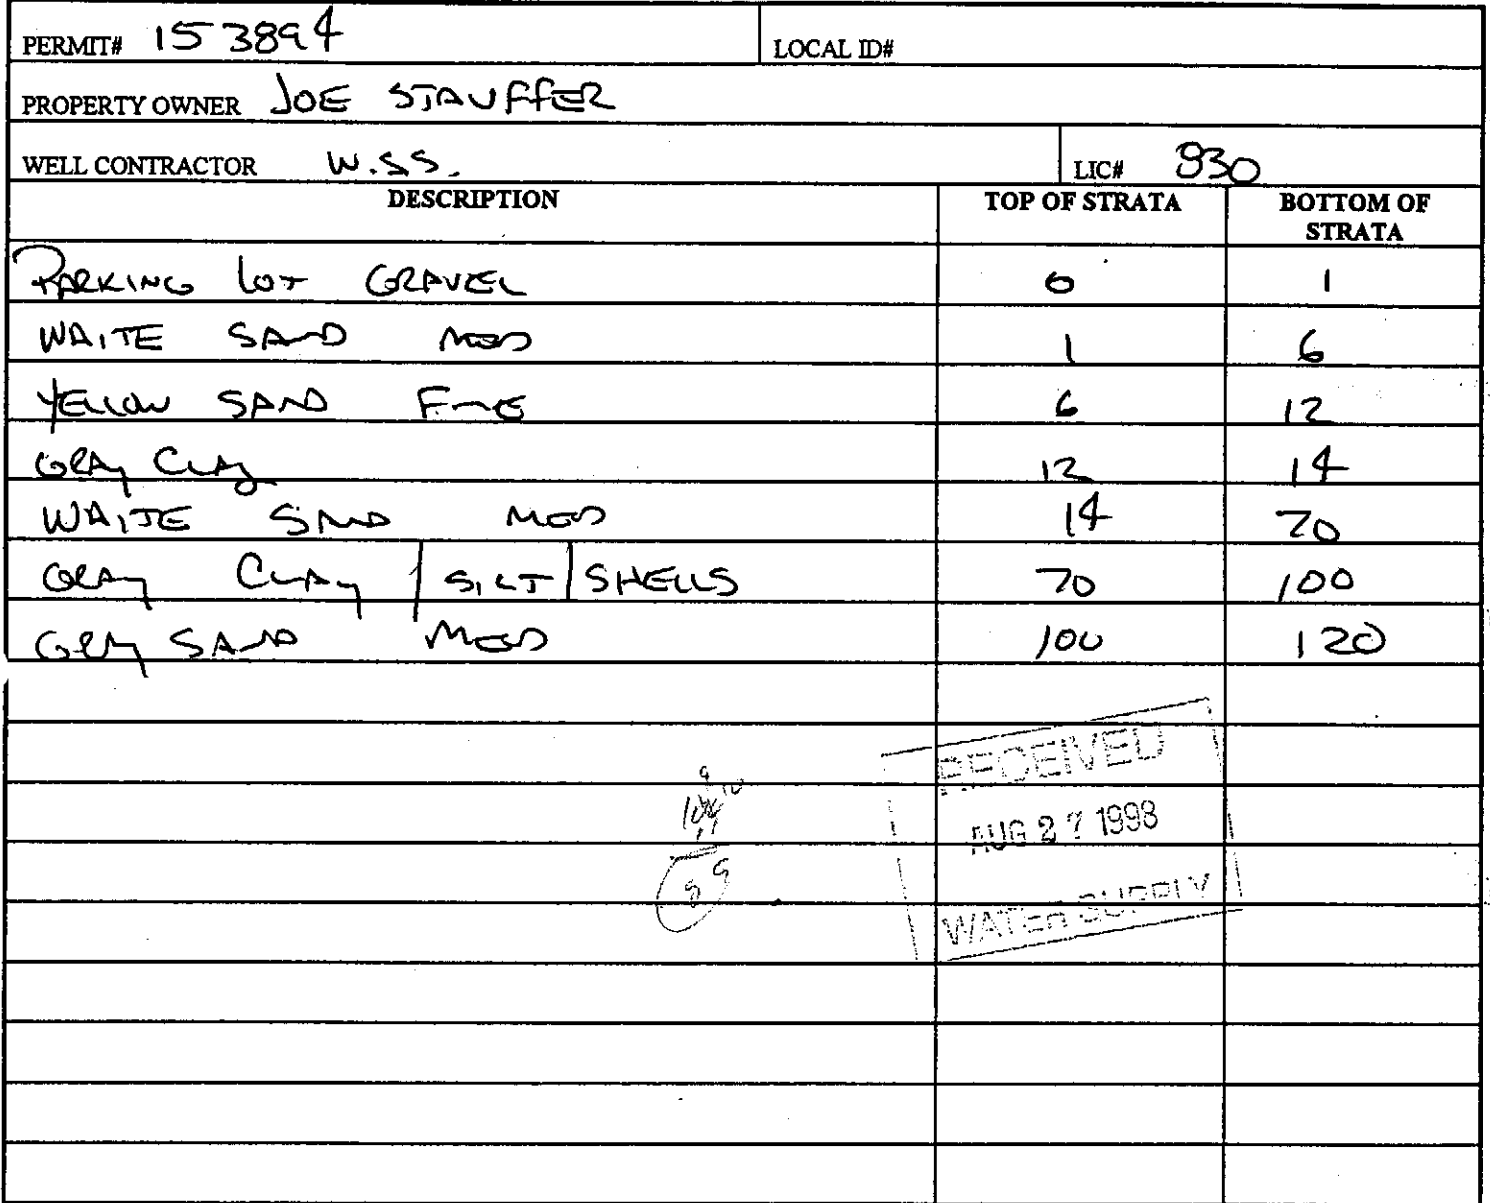 PERMIT# 153894 LOCAL ID#
PROPERTY OWNER JOE STAUFFER
WELL CONTRACTOR W.S.S. LIC# 930
DESCRIPTION TOP OF STRATA BOTTOM OF
STRATA
PARKING LOT GRAVEL 0 1
WHITE SAND MED 1 6
YELLOW SAND FINE 6 12
GRAY CLAY 12 14
WHITE SAND MED 14 70
GRAY CLAY / SILT / SHELLS 70 100
GRAY SAND MED 100 120
RECEIVED
AUG 27 1998
WATER SUPPLY